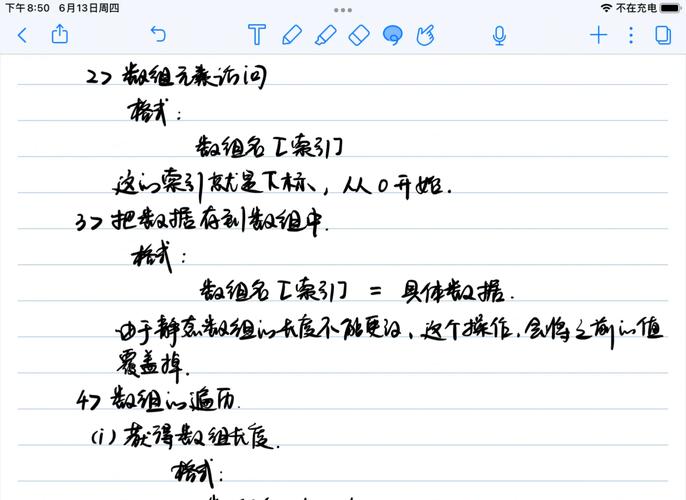 下午8:50 6月13日周四
不在充电
T
2> 数组元素访问
格式:
数组名[索引]
这的索引就是下标, 从0开始.
3> 把数据存到数组中.
格式:
数组名[索引] = 具体数据.
由于静态数组的长度不能更改, 这个操作, 会将之前的值
覆盖掉.
4> 数组的遍历.
(i) 获得数组长度.
格式: